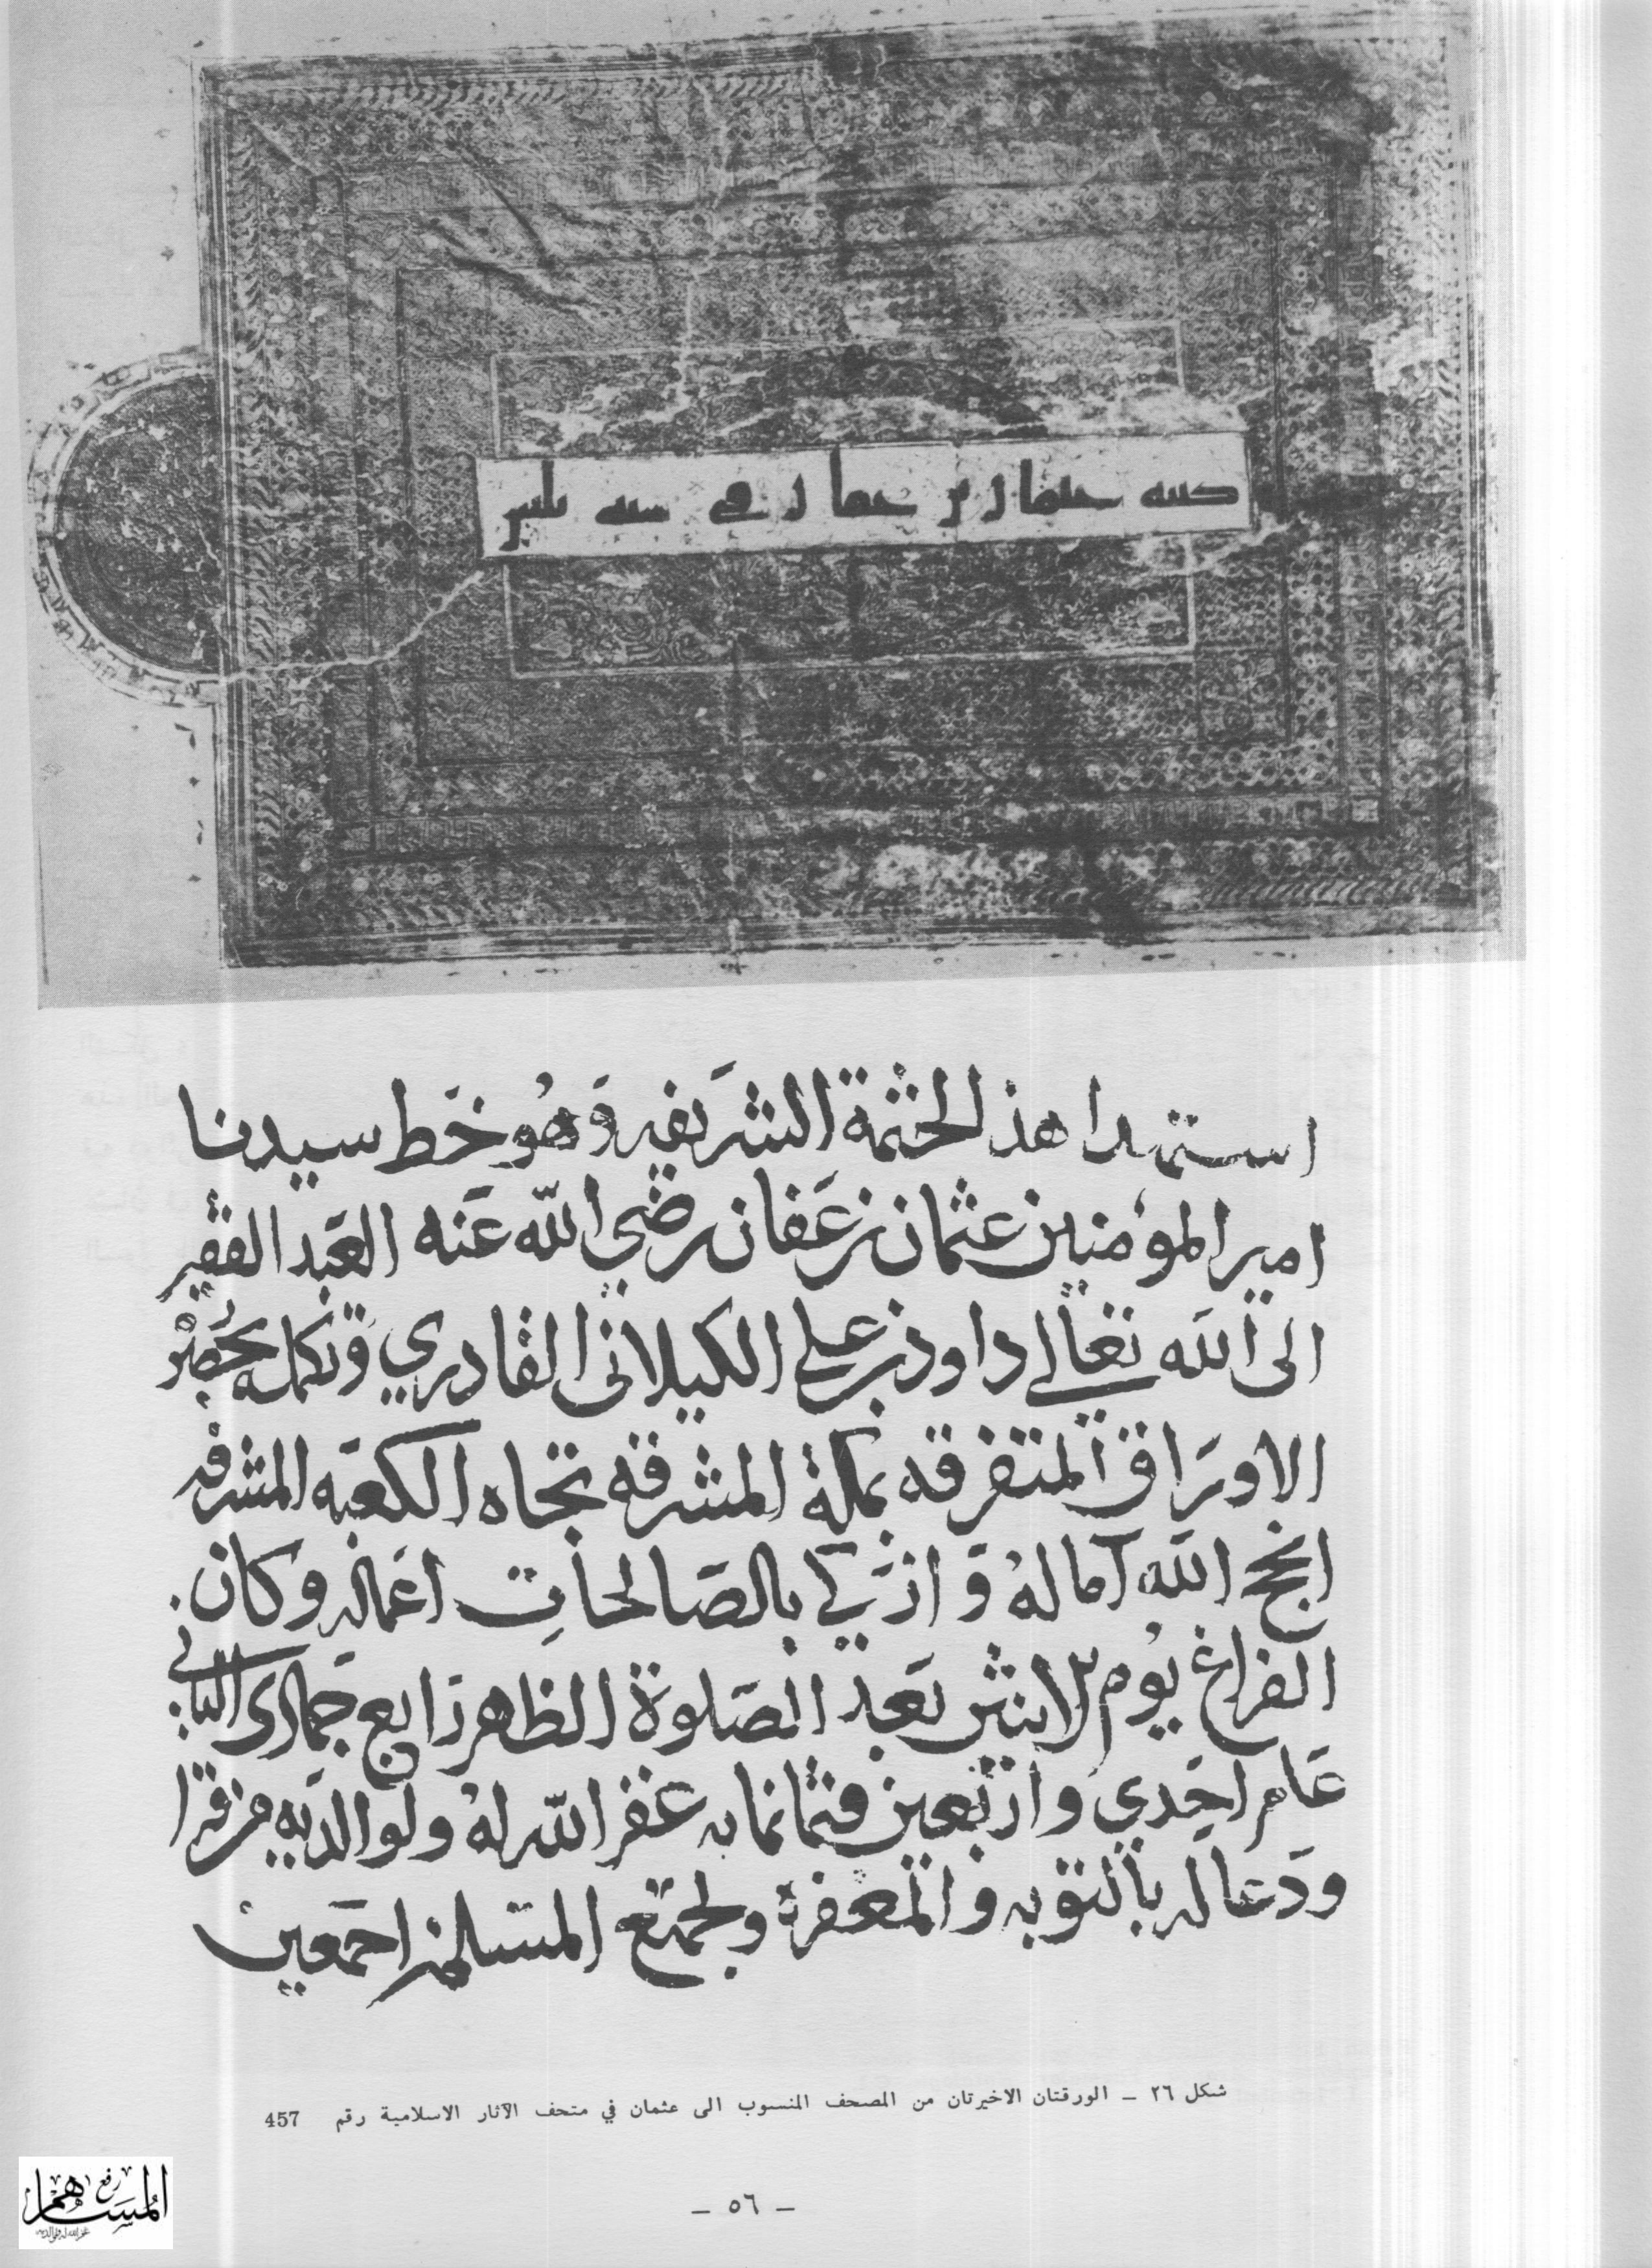 كتبه عثمان بن عفان في سنه ثلثين
استهدا هذ الختمة الشريفه وهو خط سيدنا
امير المومنين عثمان بن عفان رضي الله عنه العبد الفقير
الى الله تعالى داود بن علي الكيلانى القادري وتكمله بحضر
الاوراق المتفرقه بمكة المشرفه تجاه الكعبه المشرفه
انجح الله آماله و ازكى بالصالحات اعماله وكان
الفراغ يوم الاثنين بعد الصلوة الظهر رابع جمادى الثاني
عام احدي واربعين وثمانمايه غفر الله له ولوالديه من قرا
ودعا له بالتوبه والمغفرة ولجميع المسلمين اجمعين
شكل ٢٦ – الورقتان الاخيرتان من المصحف المنسوب الى عثمان في متحف الآثار الاسلامية رقم 457
– ٥٦ –
رفع
المساهم